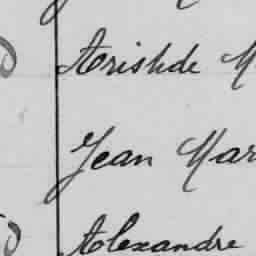 Aristide M
Jean Mar
Alexandre